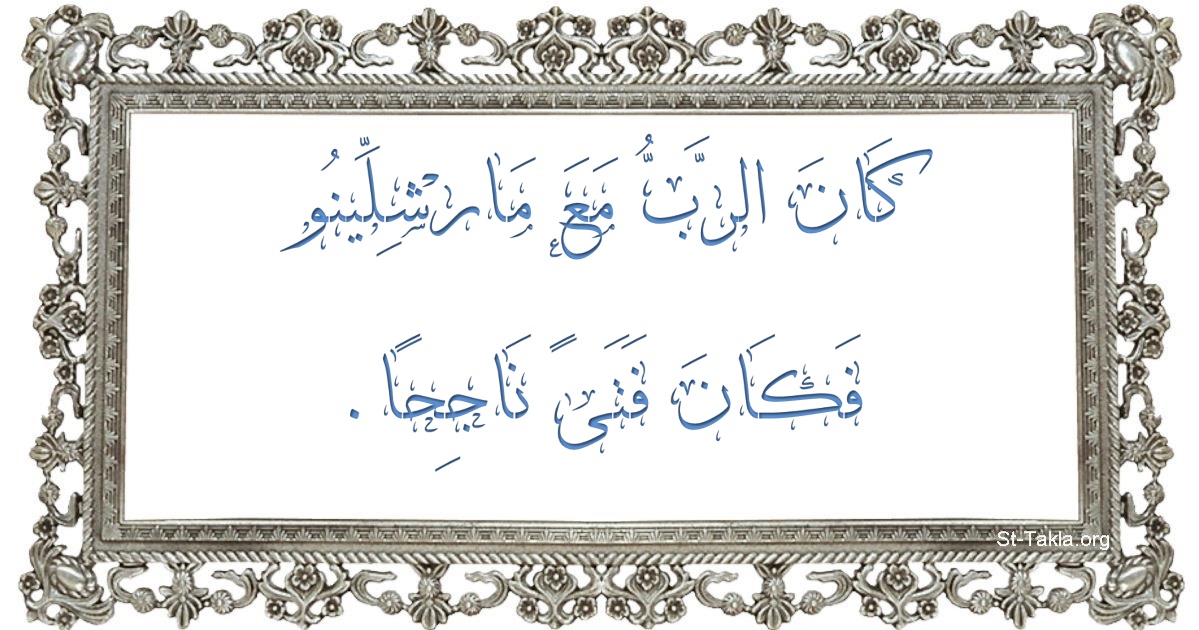 كَانَ الرَّبُّ مَعَ مَارشِلِّينُو
فَكَانَ فَتَىً نَاجِحًا .
St-Takla.org